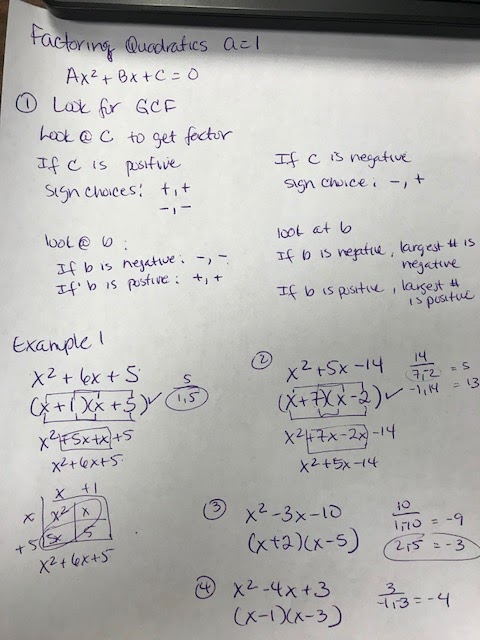 Factoring Quadratics a=1
Ax² + Bx + C = 0
① Look for GCF
Look @ C to get factor
If C is positive
Sign choices: +,+
-,-
look @ b:
If b is negative: -,-
If b is postive: +,+
If C is negative
sign choice: -,+
look at b
If b is negative, largest # is
negative
If b is positive, largest #
is positive
Example 1
x² + 6x + 5
(x+1)(x+5) ✓
5
1,5
x² + 5x + x + 5
x² + 6x + 5
x +1
x x² x
+5 5x 5
x² + 6x + 5
② x² + 5x - 14
(x+7)(x-2) ✓
14
7,2 = 5
-1,14 = 13
x² + 7x - 2x - 14
x² + 5x - 14
③ x² - 3x - 10
(x+2)(x-5)
10
1,10 = -9
2,5 = -3
④ x² - 4x + 3
(x-1)(x-3)
3
-1,-3 = -4